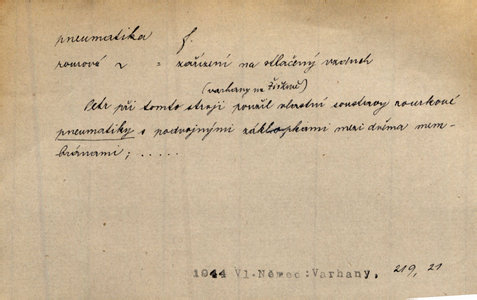 pneumatika f.
rourová ~ = zařízení na stlačený vzduch
(varhany na Žižkově)
Petr při tomto stroji použil vlastní soustavy rourkové
pneumatiky s podvojnými záklopkami mezi dvěma mem-
bránami; .....
1944 Vl.Němec:Varhany, 219, 21